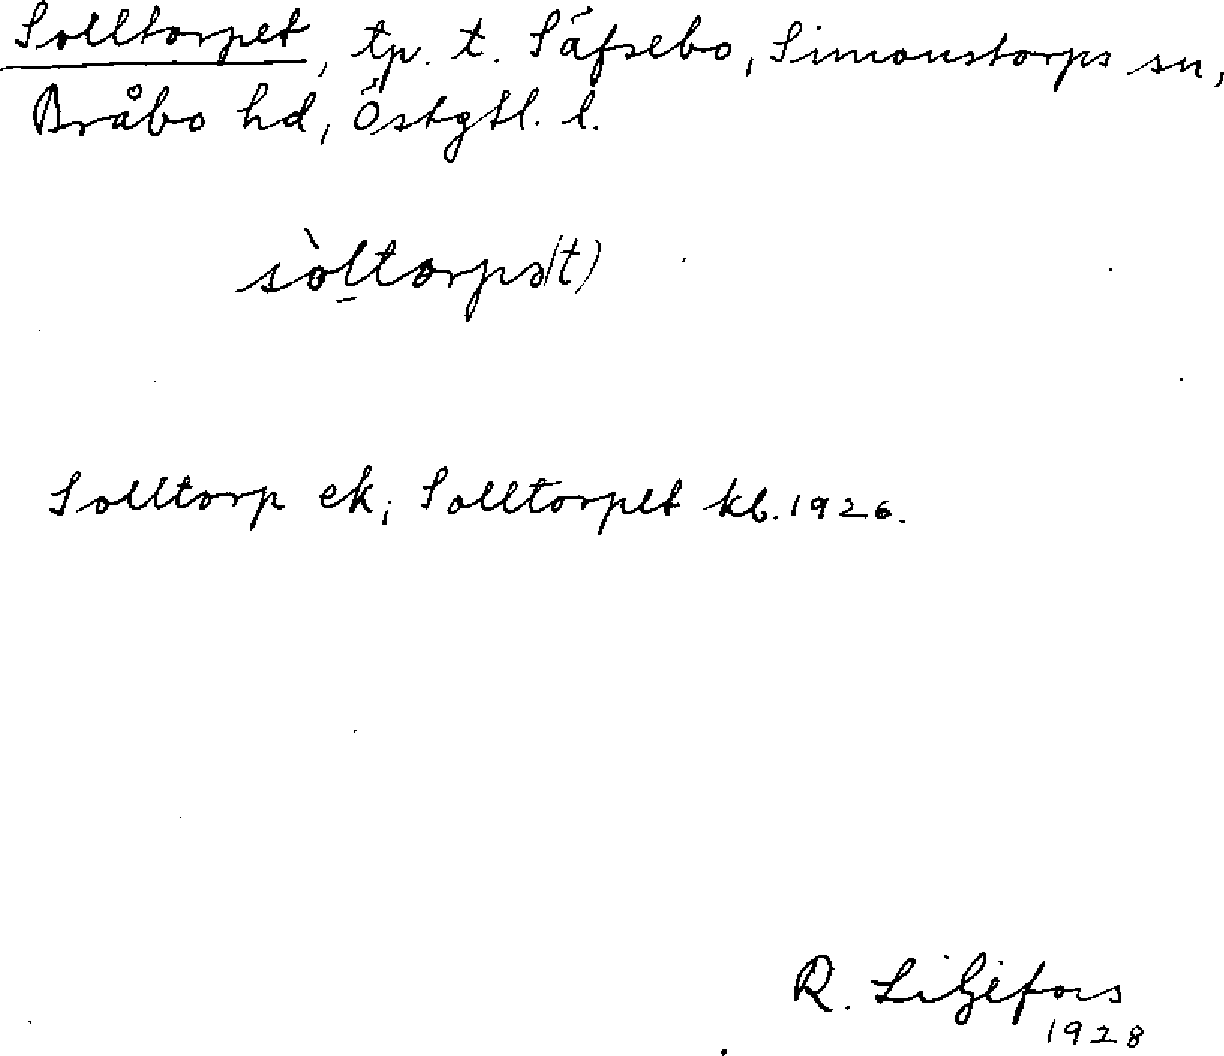 Solltorpet, tp. t. Säfsebo, Simonstorps sn,
Bråbo hd, Östgtl. l.
sòltorpə(t)
Solltorp ek; Solltorpet kb. 1926.
R. Liljefors
1928